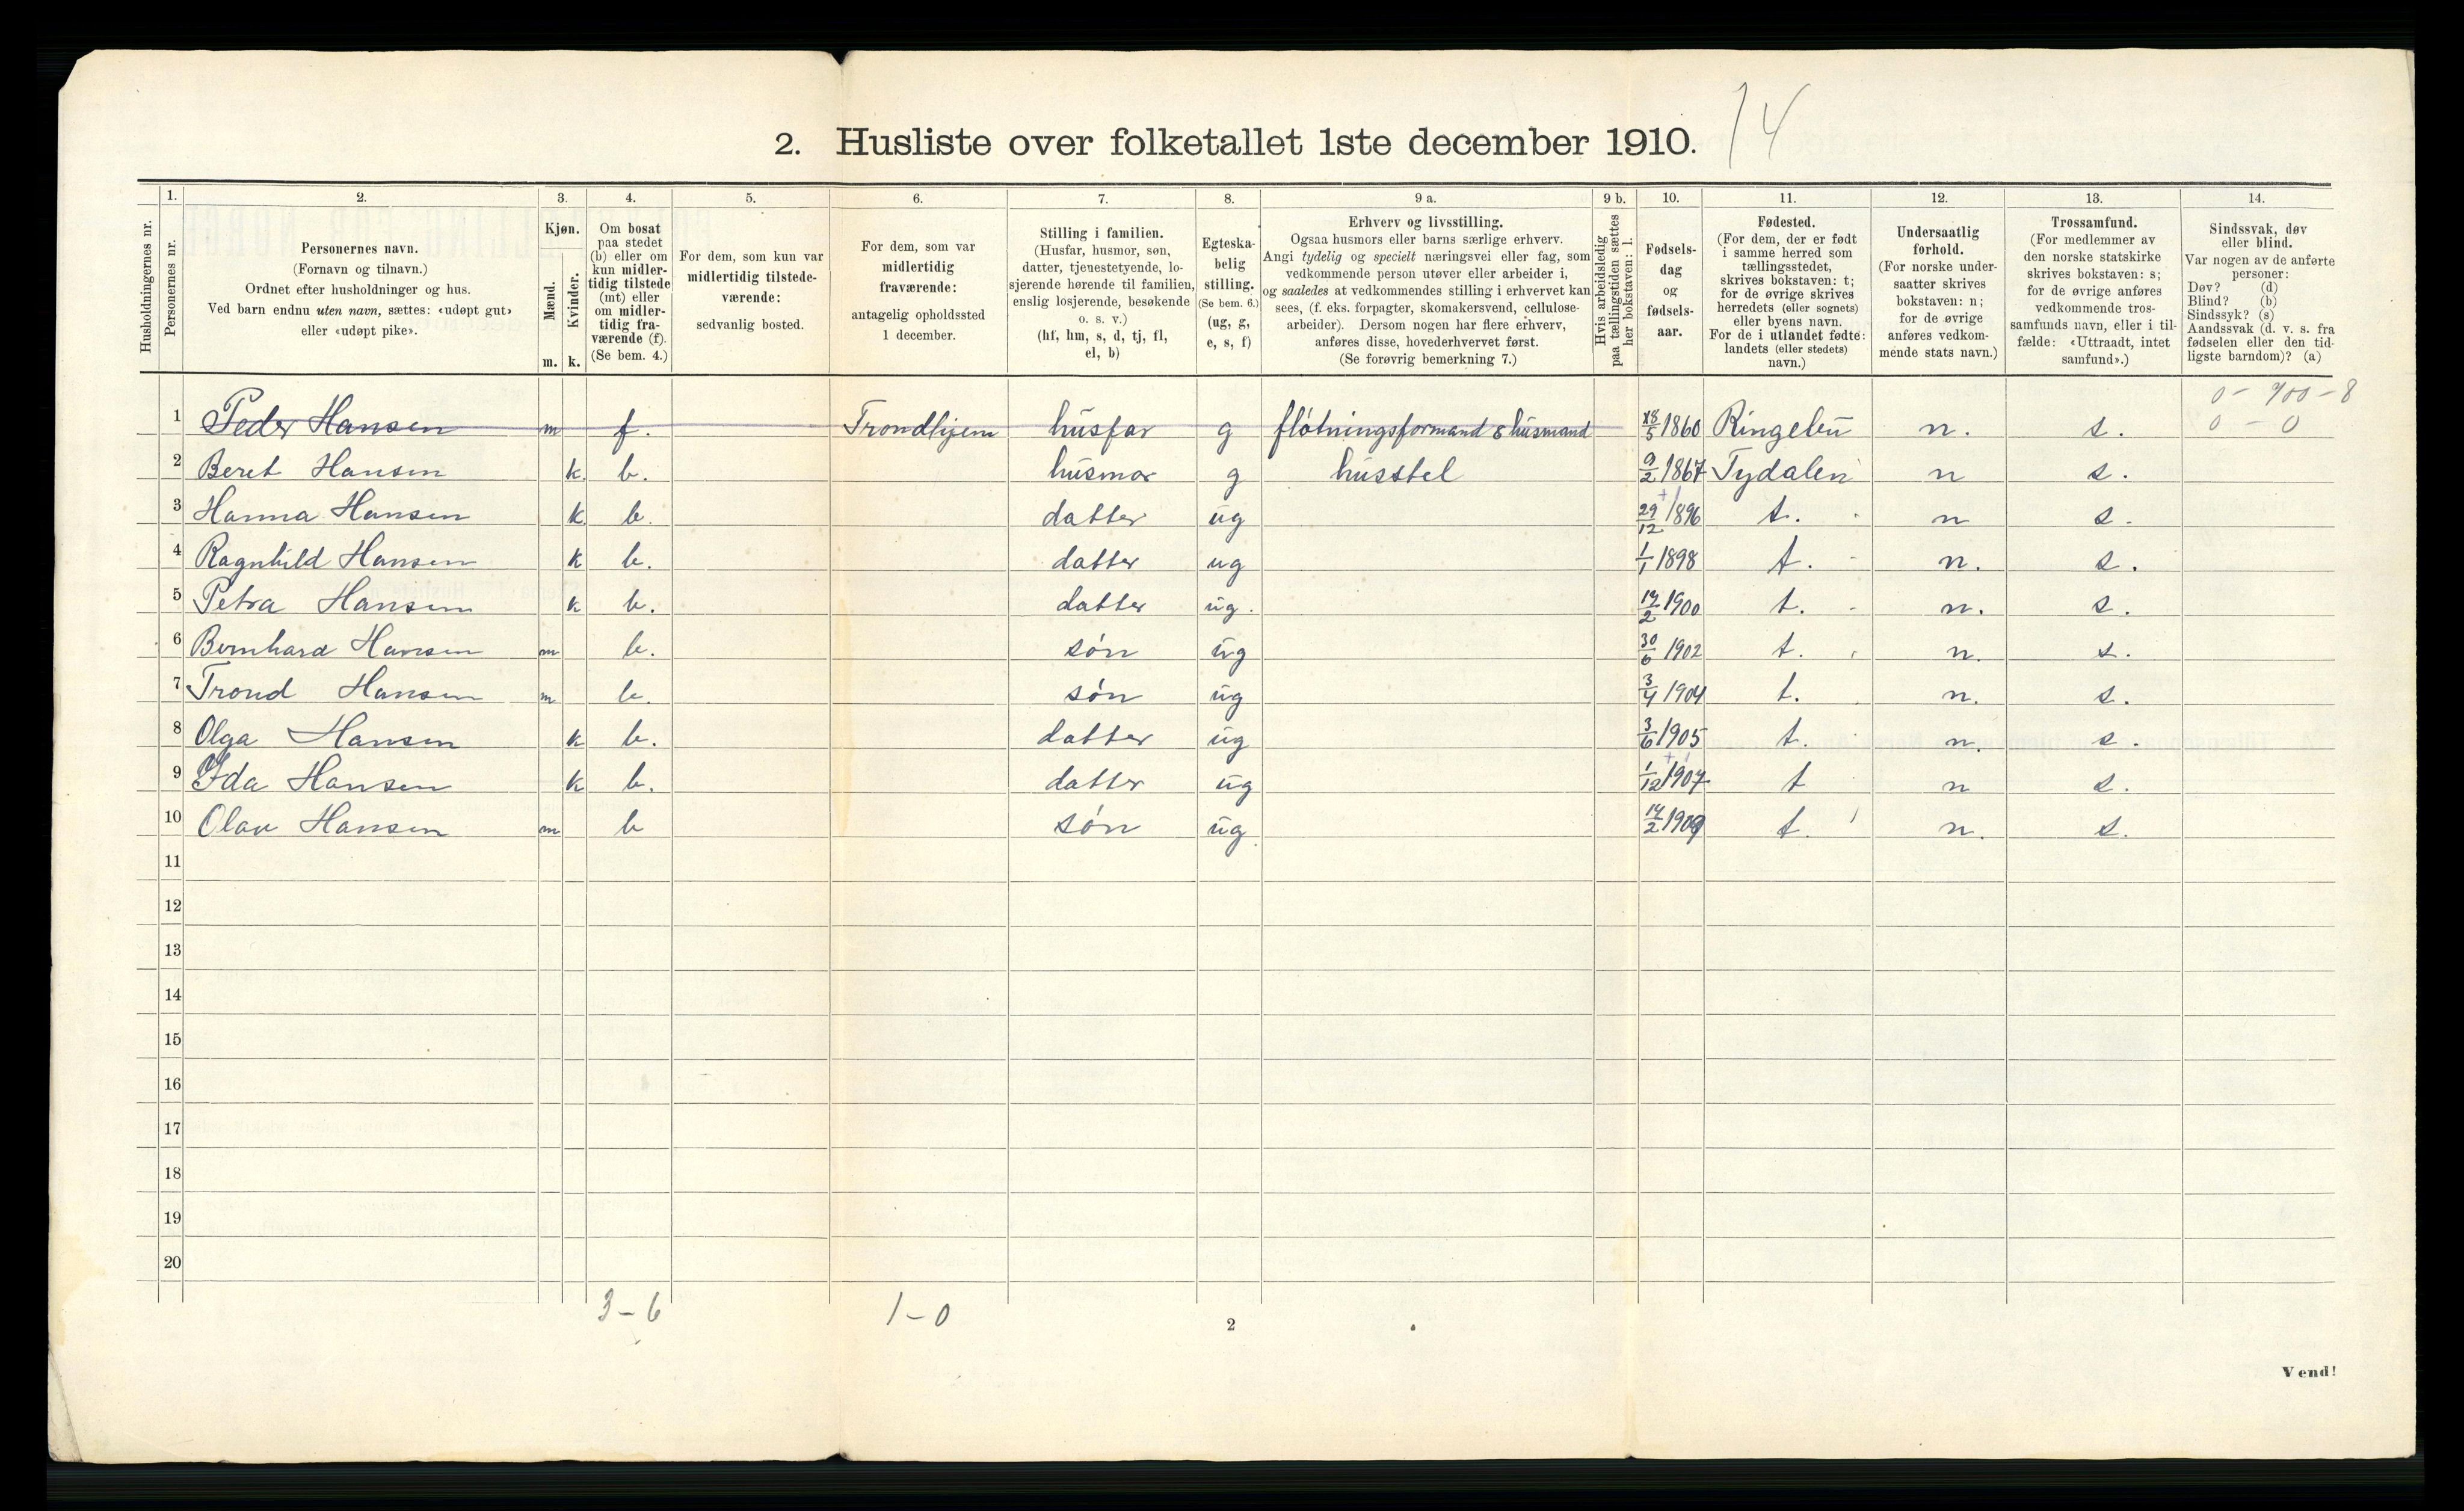 14
2. Husliste over folketallet 1ste december 1910.
Husholdningernes nr.
1. Personernes nr.
2. Personernes navn.
(Fornavn og tilnavn.)
Ordnet efter husholdninger og hus.
Ved barn endnu uten navn, sættes: «udøpt gut»
eller «udøpt pike».
3. Kjøn.
Mænd. m.
Kvinder. k.
4. Om bosat
paa stedet
(b) eller om
kun midler-
tidig tilstede
(mt) eller
om midler-
tidig fra-
værende (f).
(Se bem. 4.)
5. For dem, som kun var
midlertidig tilstede-
værende:
sedvanlig bosted.
6. For dem, som var
midlertidig
fraværende:
antagelig opholdssted
1 december.
7. Stilling i familien.
(Husfar, husmor, søn,
datter, tjenestetyende, lo-
sjerende hørende til familien,
enslig losjerende, besøkende
o. s. v.)
(hf, hm, s, d, tj, fl,
el, b)
8. Egteska-
belig
stilling.
(Se bem. 6.)
(ug, g,
e, s, f)
9 a. Erhverv og livsstilling.
Ogsaa husmors eller barns særlige erhverv.
Angi tydelig og specielt næringsvei eller fag, som
vedkommende person utøver eller arbeider i,
og saaledes at vedkommendes stilling i erhvervet kan
sees, (f. eks. forpagter, skomakersvend, cellulose-
arbeider). Dersom nogen har flere erhverv,
anføres disse, hovederhvervet først.
(Se forøvrig bemerkning 7.)
9 b. Hvis arbeidsledig
paa tællingstiden sættes
her bokstaven: l.
10. Fødsels-
dag
og
fødsels-
aar.
11. Fødested.
(For dem, der er født
i samme herred som
tællingsstedet,
skrives bokstaven: t;
for de øvrige skrives
herredets (eller sognets)
eller byens navn.
For de i utlandet fødte:
landets (eller stedets)
navn.)
12. Undersaatlig
forhold.
(For norske under-
saatter skrives
bokstaven: n;
for de øvrige
anføres vedkom-
mende stats navn.)
13. Trossamfund.
(For medlemmer av
den norske statskirke
skrives bokstaven: s;
for de øvrige anføres
vedkommende tros-
samfunds navn, eller i til-
fælde: «Uttraadt, intet
samfund».)
14. Sindssvak, døv
eller blind.
Var nogen av de anførte
personer:
Døv? (d)
Blind? (b)
Sindssyk? (s)
Aandssvak (d. v. s. fra
fødselen eller den tid-
ligste barndom)? (a)
1 Peder Hansen m f. Trondhjem husfar g fløtningsformand & husmand 18/5 1860 Ringebu n. s. 0 - 0
2 Beret Hansen k. b. husmor g husstel 9/2 1867 Tydalen n s.
3 Hanna Hansen k. b. datter ug 29/12 1896 t. n s.
4 Ragnhild Hansen k b. datter ug 1/1 1898 t. n. s.
5 Petra Hansen k b. datter ug. 14/2 1900 t. n. s.
6 Bernhard Hansen m b. søn ug 30/6 1902 t. n. s.
7 Trond Hansen m b. søn ug 3/4 1904 t. n. s.
8 Olga Hansen k b. datter ug 3/6 1905 t. n. s.
9 Ida Hansen k b. datter ug 1/12 1907 t n s.
10 Olav Hansen m b søn ug. 14/2 1909 t. n. s.
11
12
13
14
15
16
17
18
19
20
3 - 6 1 - 0
2
Vend!